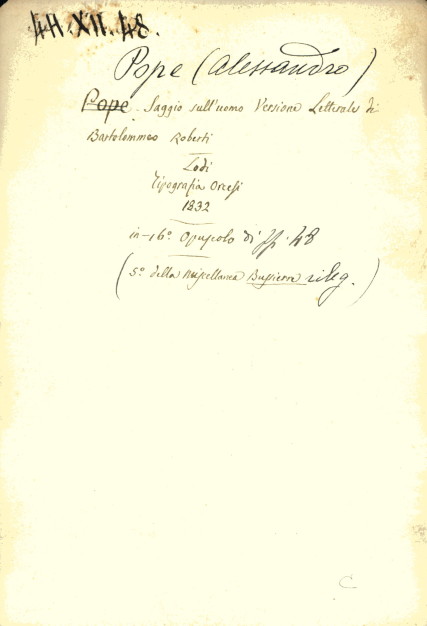 44.XII.48.
Pope (Alessandro)
Pope - Saggio sull'uomo Versione Letterale di
Bartolommeo Roberti
Lodi
Tipografia Orcesi
1832
in-16° Opuscolo di pp. 48
(5° della Miscellanea Bussierre rileg.)
C